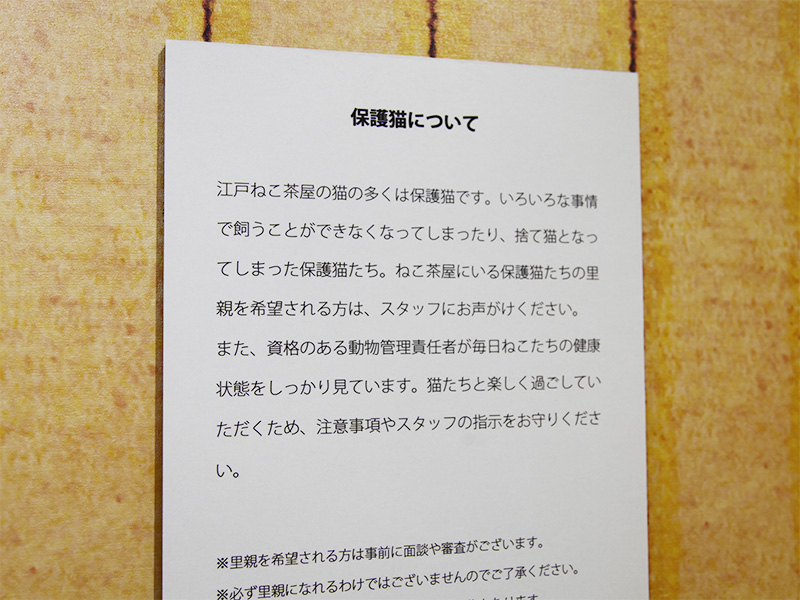 保護猫について
江戸ねこ茶屋の猫の多くは保護猫です。いろいろな事情
で飼うことができなくなってしまったり、捨て猫となっ
てしまった保護猫たち。ねこ茶屋にいる保護猫たちの里
親を希望される方は、スタッフにお声がけください。
また、資格のある動物管理責任者が毎日ねこたちの健康
状態をしっかり見ています。猫たちと楽しく過ごしてい
ただくため、注意事項やスタッフの指示をお守りくださ
い。
※里親を希望される方は事前に面談や審査がございます。
※必ず里親になれるわけではございませんのでご了承ください。